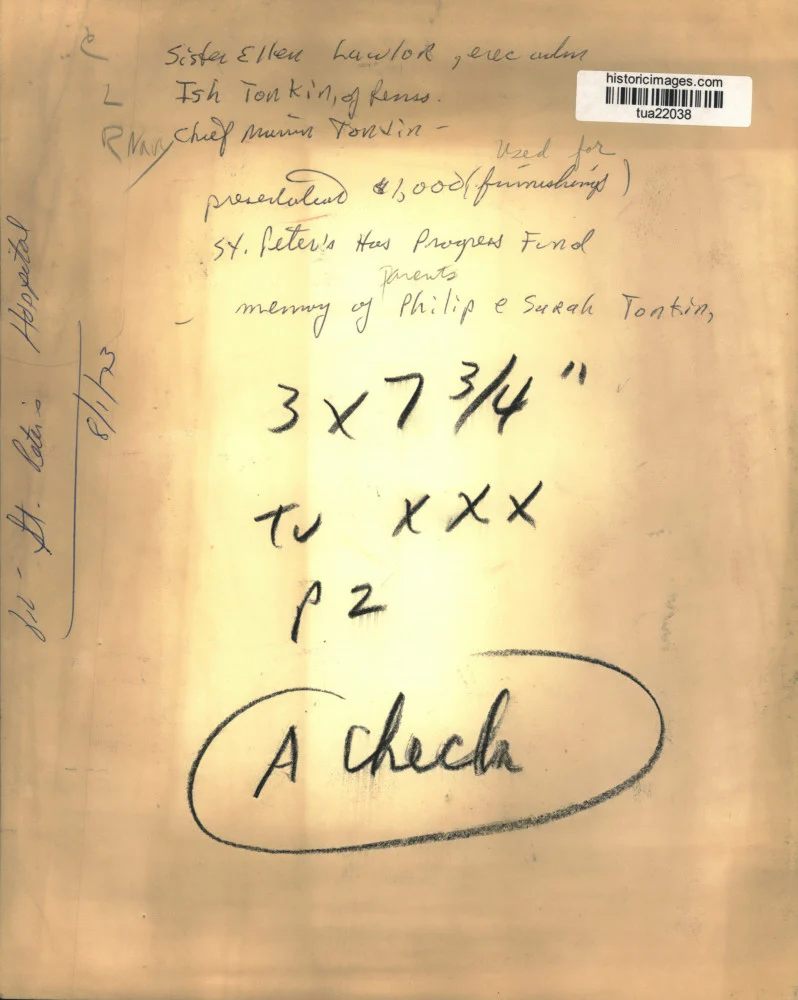 C Sister Ellen Lawlor, exec adm
L Ish Tonkin, of Renss.
R Navy Chief Tonkin -
Used for
presentation $1,000 (furnishings)
St. Peter's Hos Progress Fund
Parents
memory of Philip e Sarah Tonkin,
3 x 7 3/4"
TU X X X
P 2
A check
St. Peter's Hospital
historicimages.com
tua22038